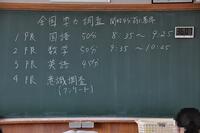 全国学力調査
1 PR 国語 50分 8:35 ～ 9:25
2 PR 数学 50分 9:35 ～ 10:25
3 PR 英語 45分
4 PR 意識調査
(アンケート)